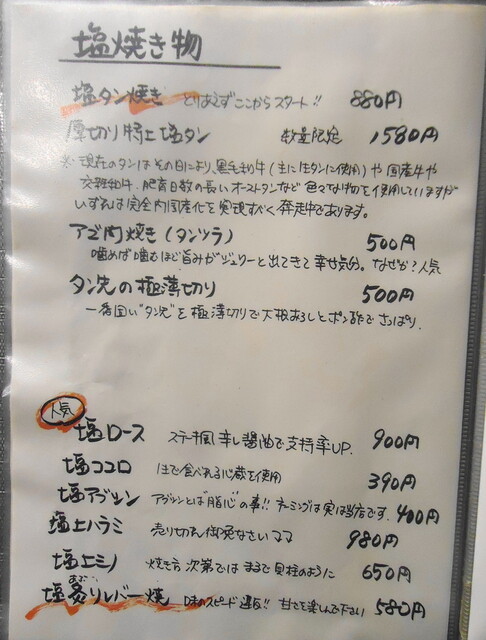 塩焼き物
塩タン焼き とりあえずここからスタート!! 880円
厚切り特上塩タン 数量限定 1580円
※現在のタンはその日により、黒毛和牛(主に生タンに使用)や国産牛や
交雑和牛、肥育日数の長いオーストンなど色々なものを使用していますが
いずれは完全内国産化を実現すべく奔走中であります。
アゴ肉焼き(タンツラ) 500円
噛めば噛むほど旨みがジュワーと出てきて幸せ気分。なぜか?人気
タン先の極薄切り 500円
一番固い"タン先"を極薄切りで大根おろしとポン酢でさっぱり.
人気
塩ロース ステーキ風 辛し醤油で支持率UP. 900円
塩ココロ 生で食べれる心臓を使用 390円
塩アブシン アブシンとは"脂心"の事!! ネーミングは実は当店です. 400円
塩上ハラミ 売り切れ御免なさいママ 980円
塩上ミノ 焼き方次第ではまるで貝柱のように 650円
塩炙りレバー焼 あぶ 味のスピード違反!! 甘さを楽しんで下さい 580円